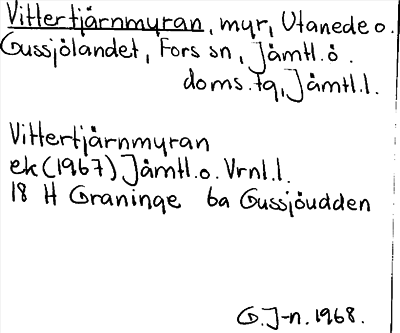 Vittertjärnmyran, myr, Utanede o.
Gussjölandet, Fors sn, Jämtl. ö.
doms. tg, Jämtl. l.
Vittertjärnmyran
ek (1967) Jämtl. o. Vrnl. l.
18 H Graninge 6a Gussjöudden
G. J-n. 1968.